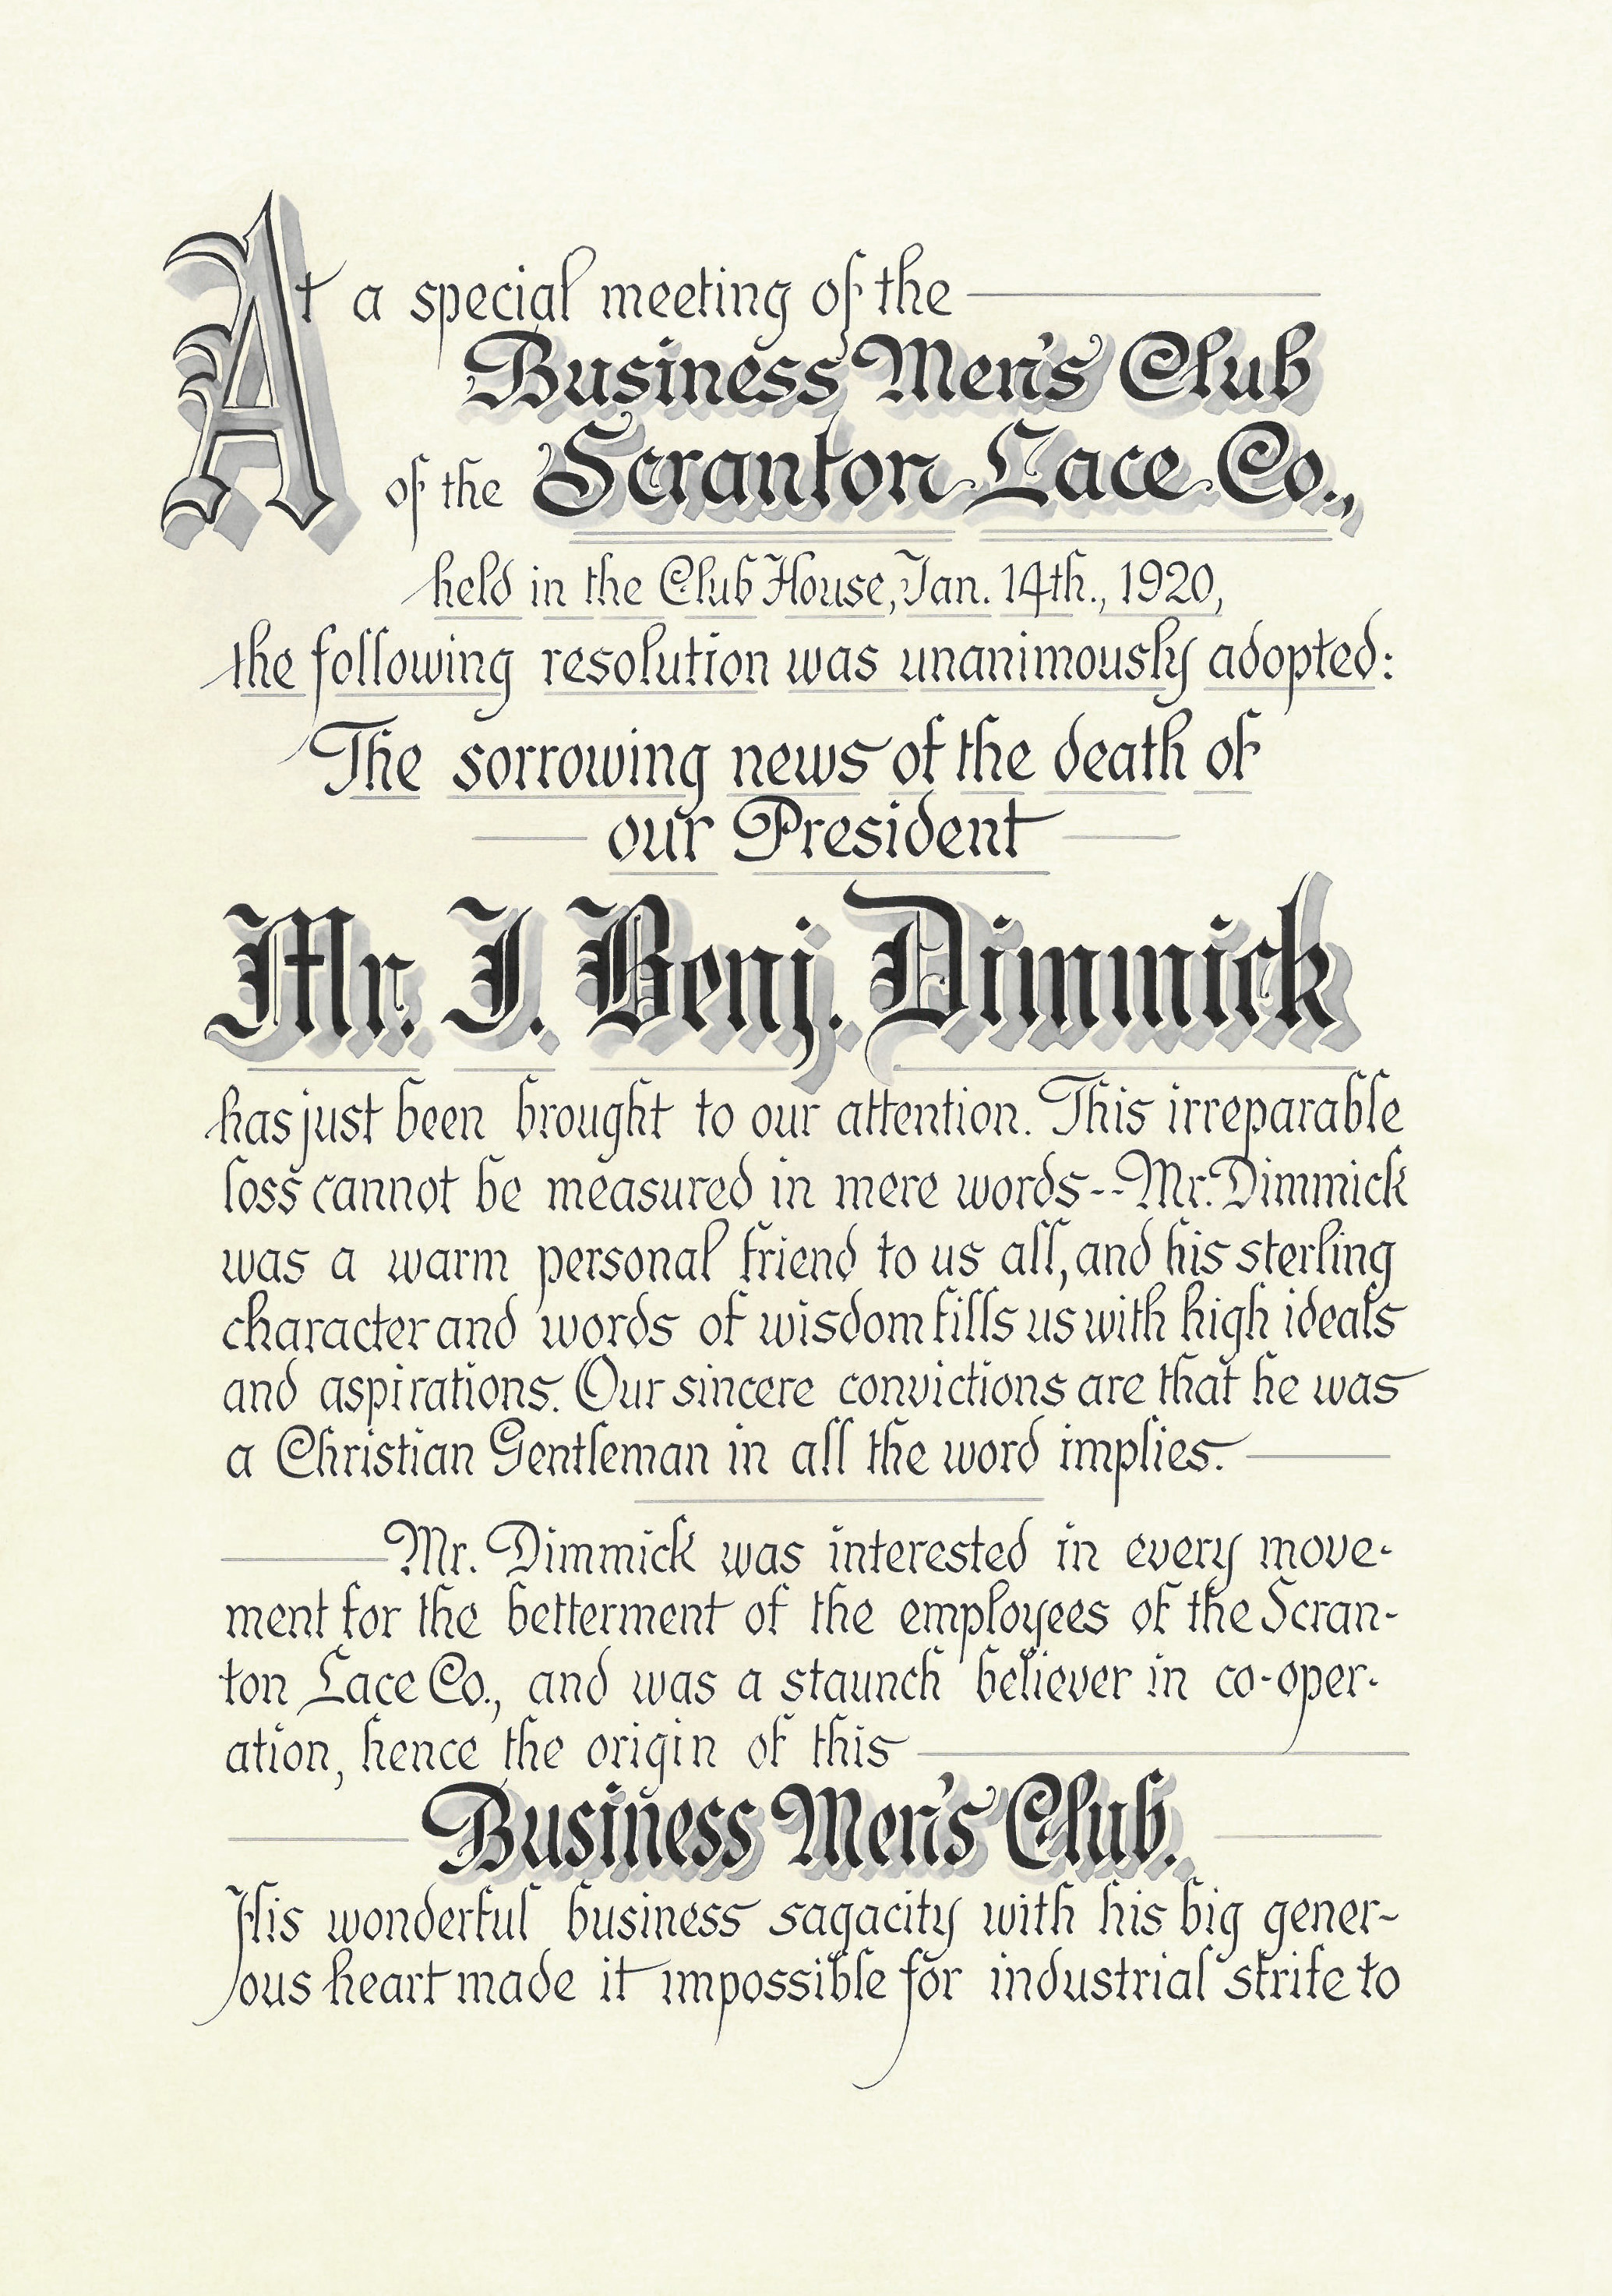 At a special meeting of the
Business Men's Club
of the Scranton Lace Co.,
held in the Club House, Jan. 14th., 1920,
the following resolution was unanimously adopted:
The sorrowing news of the death of
our President
Mr. J. Benj. Dimmick
has just been brought to our attention. This irreparable
loss cannot be measured in mere words--Mr. Dimmick
was a warm personal friend to us all, and his sterling
character and words of wisdom fills us with high ideals
and aspirations. Our sincere convictions are that he was
a Christian Gentleman in all the word implies.
Mr. Dimmick was interested in every move-
ment for the betterment of the employees of the Scran-
ton Lace Co., and was a staunch believer in co-oper-
ation, hence the origin of this
Business Men's Club.
His wonderful business sagacity with his big gener-
ous heart made it impossible for industrial strife to